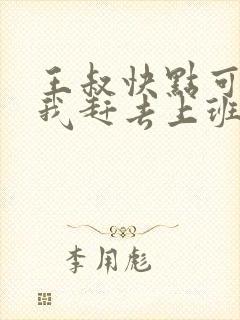 王叔快點可
我赶去上班
李用彪